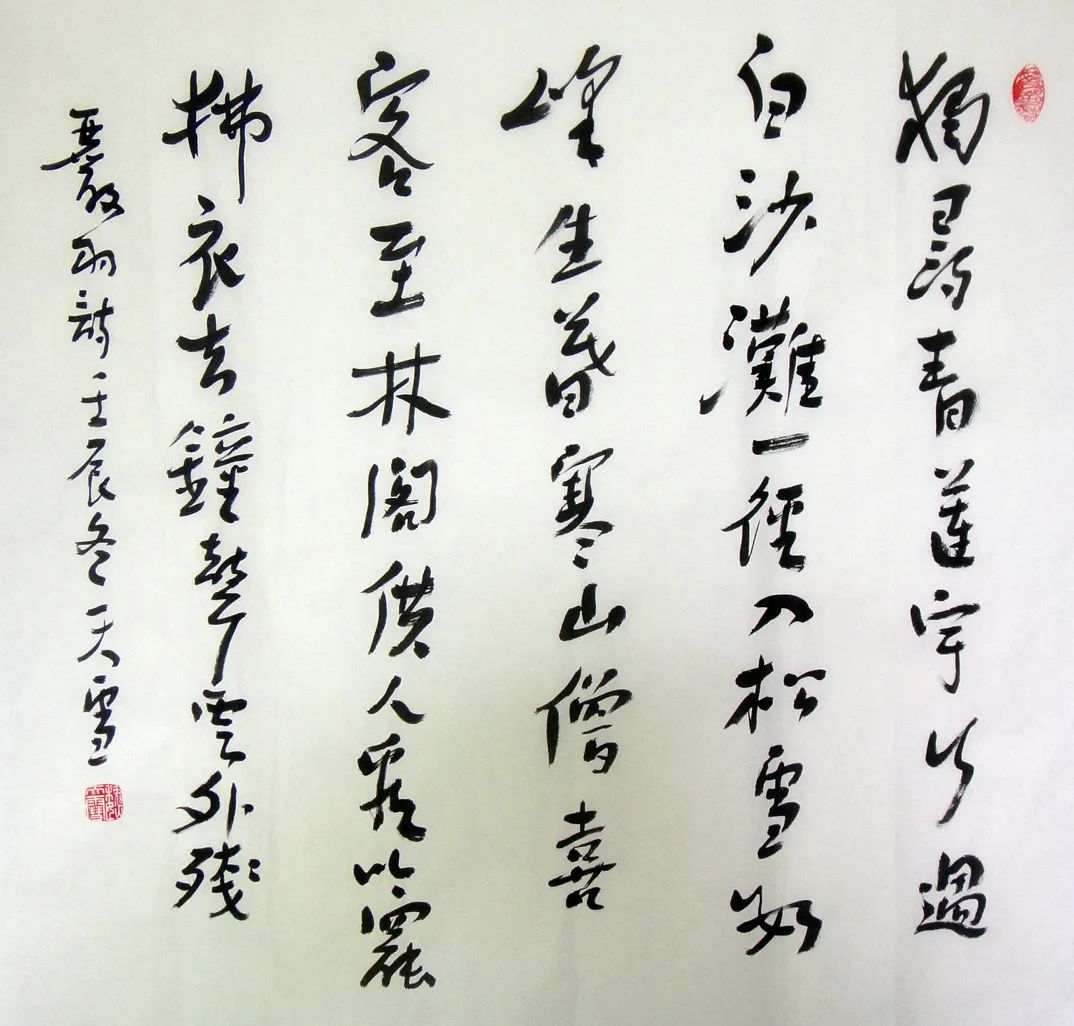 獨尋青蓮宇行過
白沙灘一徑入松雪數
峰生暮寒山僧喜
客至林閣供人看吟罷
拂衣去鐘聲雲外殘
嚴羽詩壬辰冬天雪